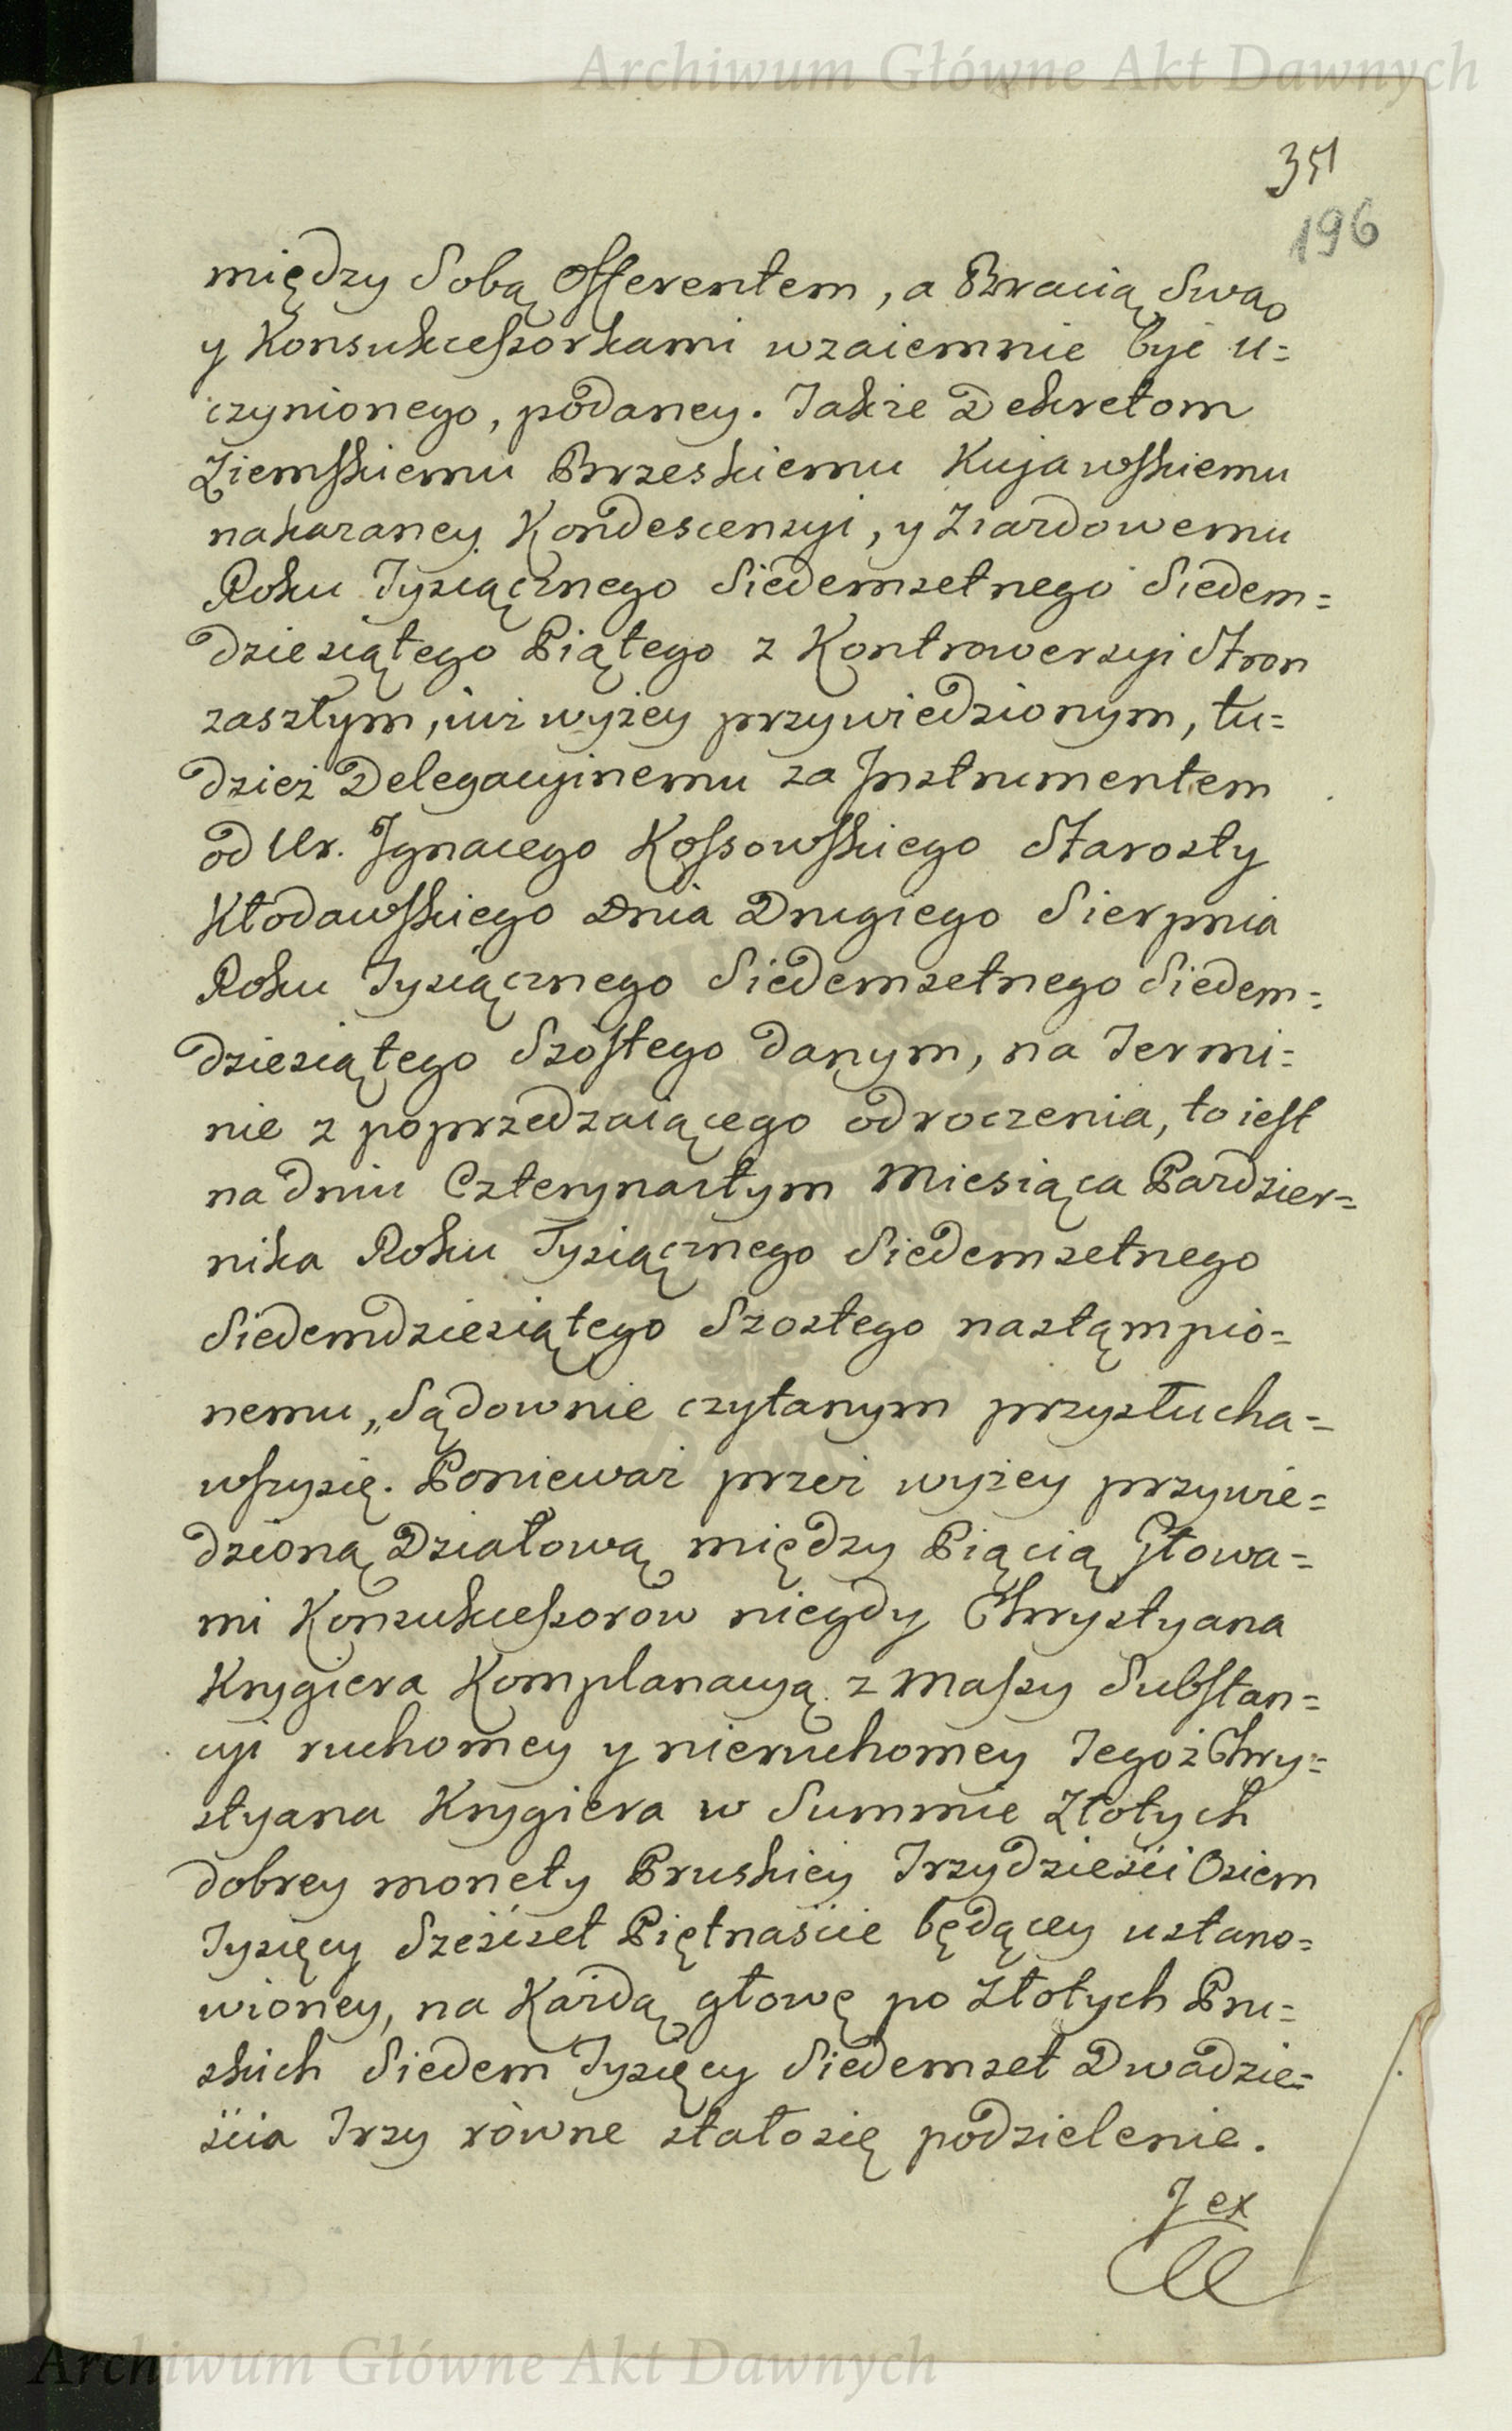 Archiwum Główne Akt Dawnych
351
196
między Sobą Offerentem, a Bracią Swą
y Konsukceszorkami wzaiemnie być u=
czynionego, podaney. Jakże Dekretom
Ziemskiemu Brzeskiemu Kujawskiemu
nakazaney Kondescensyi, y Ziazdowemu
Roku Tysiącznego Siedemsetnego Siedem=
dziesiątego Piątego z Kontrowersyi Stron
zaszłym, iuż wyżey przywiedzionym, tu=
dzież Delegacyinemu za Instrumentem
od Ur. Jgnacego Kossowskiego Starosty
Kłodawskiego Dnia Drugiego Sierpnia
Roku Tysiącznego Siedemsetnego Siedem=
dziesiątego Szostego danym, na Termi=
nie z poprzedzaiącego odroczenia, to iest
na dniu Czternastym Miesiąca Pazdzier=
nika Roku Tysiącznego Siedemsetnego
Siedemdziesiątego Szostego nastąmpio=
nemu, Sądownie czytanym przysłucha=
wszysię. Ponieważ przez wyżey przywie=
dzioną Działową między Piącią Głowa=
mi Konsukceszorow niegdy Chrystyana
Krygiera Komplanacyą z Maszy Substan=
cyi ruchomey y nieruchomey Jegoż Chry=
styana Krygiera w Summie Złotych
dobrey monety Pruskiey Trzydzieści Osiem
Tysięcy Sześćset Piętnaście będącey ustano=
wioney, na Każdą głowę po Złotych Pru=
skich Siedem Tysięcy Siedemset Dwadzie=
ścia Trzy rowne stałosię podzielenie.
J ex
Archiwum Główne Akt Dawnych